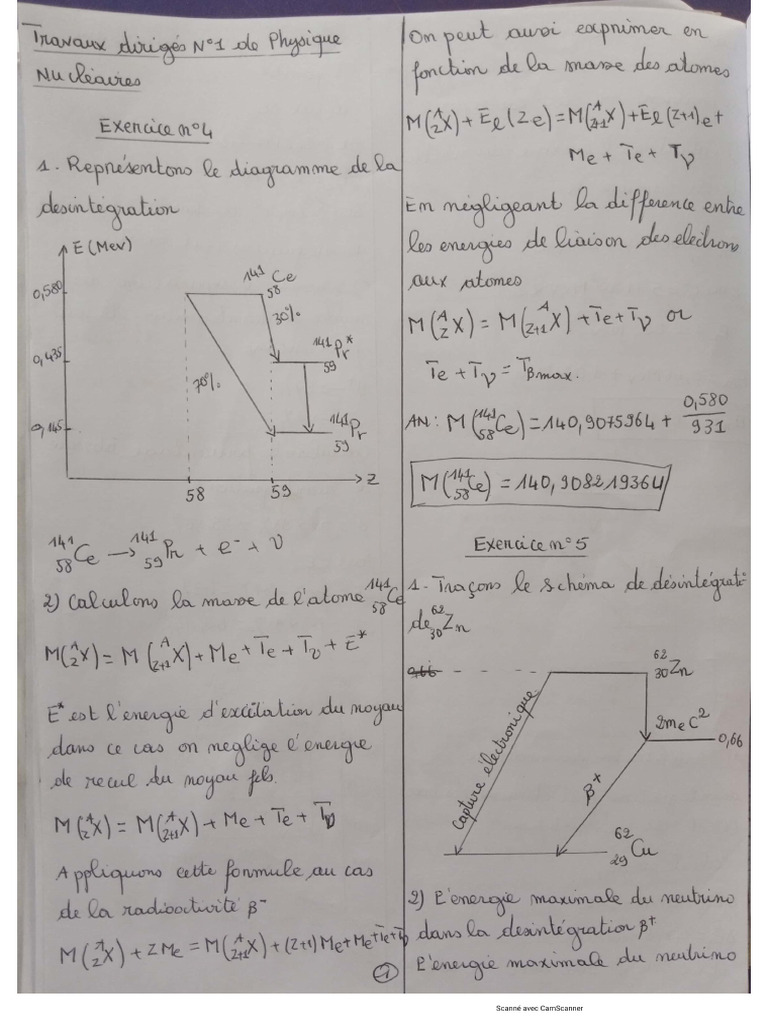 Travaux dirigés N°1 de Physique
Nucléaires
Exercice n°4
1. Représentons le diagramme de la
desintégration
E (Mev)
0,580
0,435
0,145
¹⁴¹₅₈Ce
30%
¹⁴¹₅₉Pr*
70%
¹⁴¹₅₉Pr
58
59
Z
¹⁴¹₅₈Ce → ¹⁴¹₅₉Pr + e⁻ + ν
2) Calculons la masse de l'atome ¹⁴¹₅₈Ce
M(ᴬ_Z X) = M(ᴬ_{Z+1} X) + Me + Te + Tν + E*
E* est l'énergie d'excitation du noyau
dans ce cas on neglige l'energie
de recul du noyau fils.
M(ᴬ_Z X) = M(ᴬ_{Z+1} X) + Me + Te + Tν
Appliquons cette formule au cas
de la radioactivité β⁻
M(ᴬ_Z X) + Z Me = M(ᴬ_{Z+1} X) + (Z+1) Me + Me + Te + Tν
1
On peut aussi exprimer en
fonction de la masse des atomes
M(ᴬ_Z X) + Eℓ(Ze) = M(ᴬ_{Z+1} X) + Eℓ(Z+1)e +
Me + Te + Tν
En négligeant la difference entre
les energies de liaison des electrons
aux atomes
M(ᴬ_Z X) = M(ᴬ_{Z+1} X) + Te + Tν or
Te + Tν = Tβmax.
AN: M(¹⁴¹₅₈Ce) = 140,9075964 + 0,580/931
M(¹⁴¹₅₈Ce) = 140,908219364
Exercice n°5
1. Traçons le schéma de désintégrati
de ⁶²₃₀Zn
0,66
⁶²₃₀Zn
2meC²
0,66
Capture électronique
β⁺
⁶²₂₉Cu
2) L'énergie maximale du neutrino
dans la desintégration β⁺
L'énergie maximale du neutrino
Scanné avec CamScanner